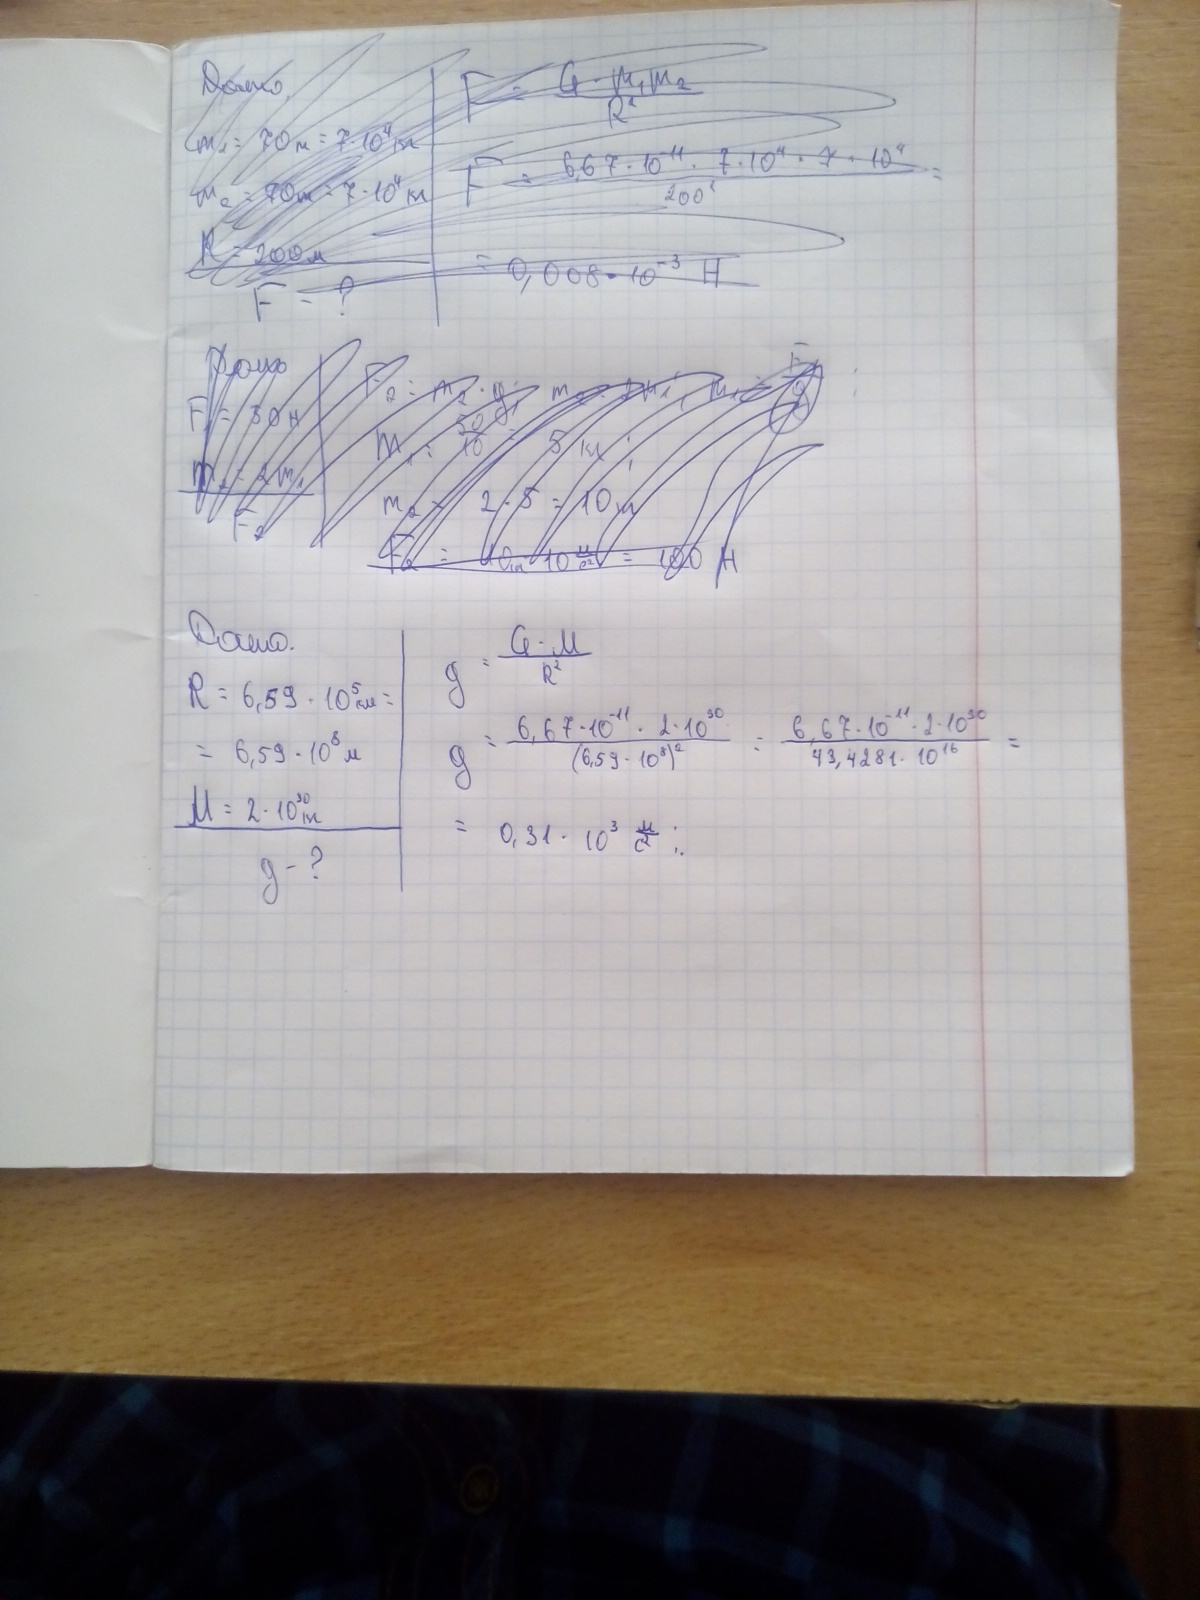 Дано.
m₁ = 70т = 7·10⁴кг
m₂ = 70т = 7·10⁴кг
R = 200м
F = ?
F = G·m₁m₂ / R²
F = 6,67·10⁻¹¹·7·10⁴·7·10⁴ / 200² =
= 0,008·10⁻³ Н
Дано
F₁ = 50н
m₂ = 2m₁
F₂
F₂ = m₂·g; m₂ = 2m₁; m₁ = F₁ / g;
m₁ = 50/10 = 5 кг;
m₂ = 2·5 = 10кг
F₂ = 10кг·10 м/с² = 100 Н
Дано.
R = 6,59·10⁵км =
= 6,59·10⁸м
M = 2·10³⁰кг
g - ?
g = G·M / R²
g = 6,67·10⁻¹¹·2·10³⁰ / (6,59·10⁸)² = 6,67·10⁻¹¹·2·10³⁰ / 43,4281·10¹⁶ =
= 0,31·10³ м/с²;